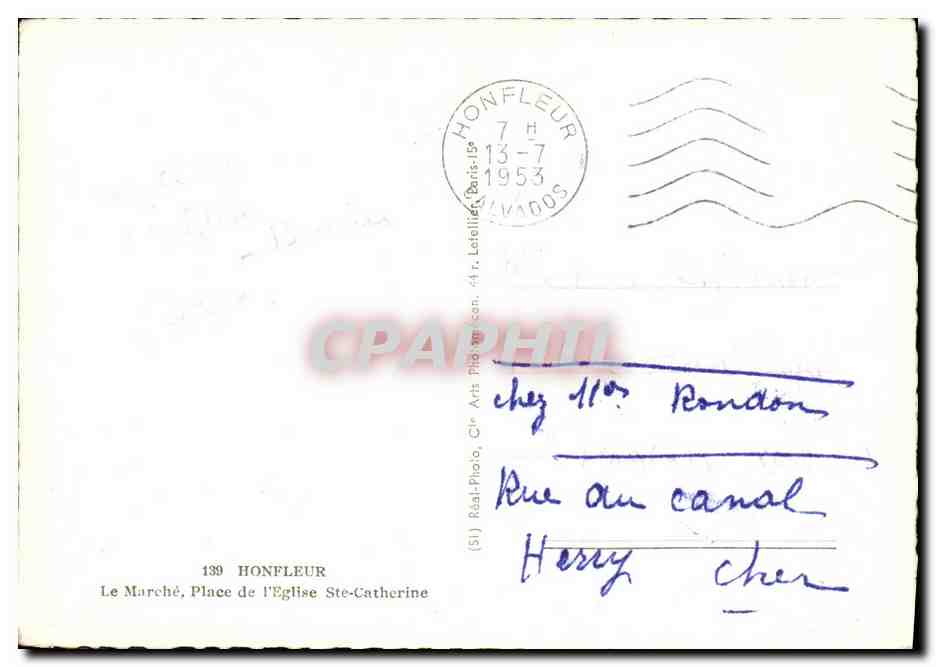 HONFLEUR
7 H
13-7
1953
CALVADOS
(51) Réal-Photo, Cie Arts Photomécan. 44 r. Letellier, Paris-15e
CPAPHIL
chez Rondon
Rue du canal
Herry Cher
139 HONFLEUR
Le Marché, Place de l'Eglise Ste-Catherine